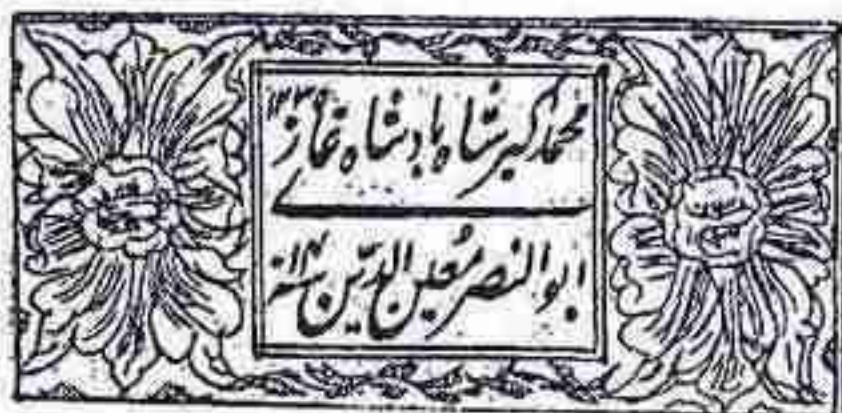 محمد اکبر شاہ بادشاہ غازی
ابو النصر معین الدین سنہ ۱۴